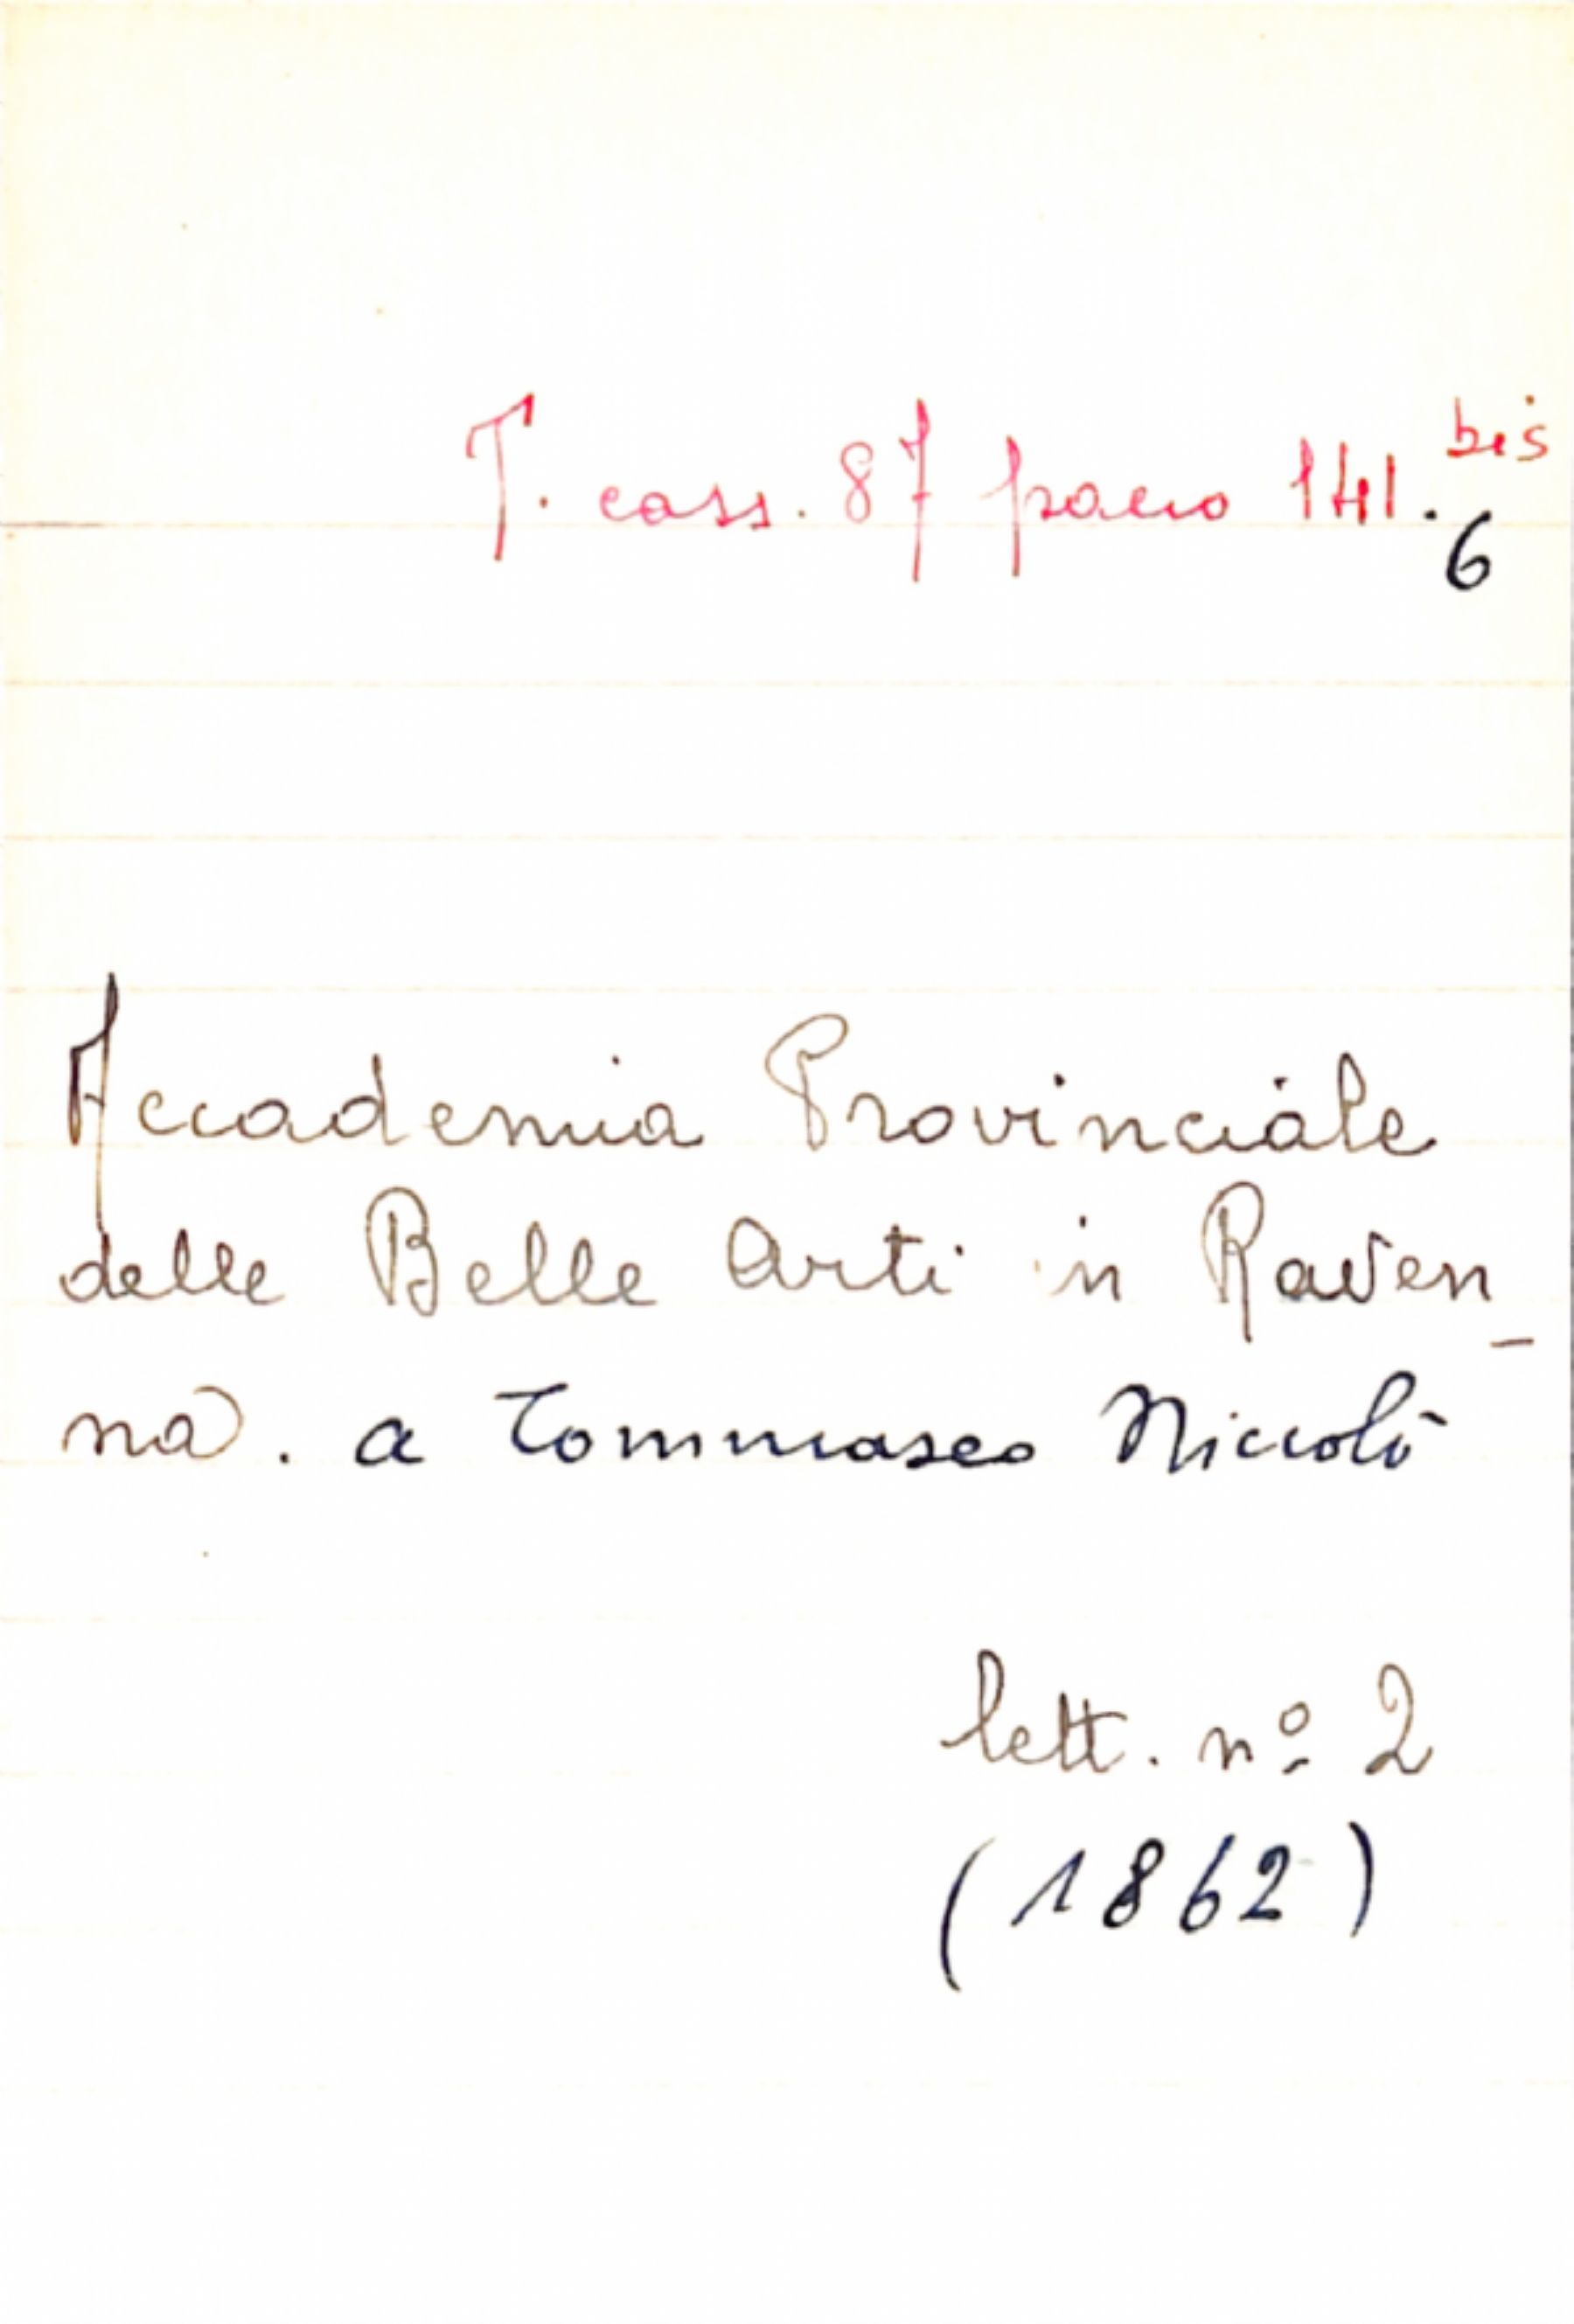 T. cass. 87 pacco 141. bis
6
Accademia Provinciale
delle Belle Arti in Raven_
na. a Tommaseo Niccolò
lett. nº 2
(1862)